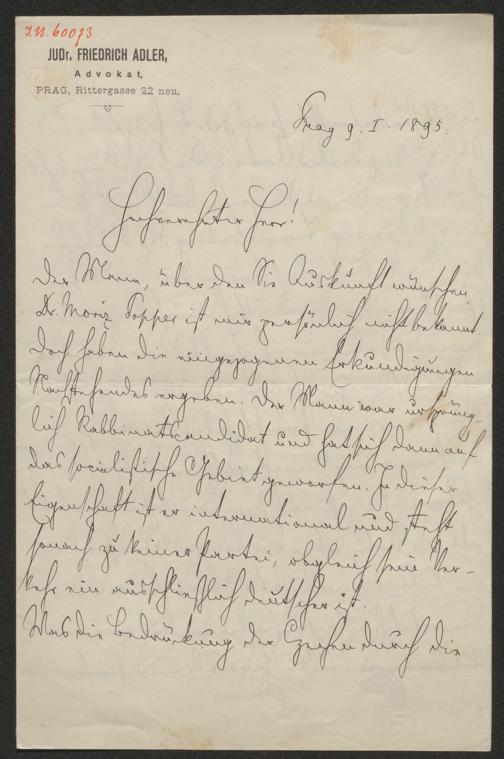 J.N. 60073
JUDr. FRIEDRICH ADLER,
Advokat,
PRAG, Rittergasse 22 neu.
Prag 9. I. 1895.
Hochverehrter Herr!
Der Mann, über den Sie Auskunft wünschen,
Dr. Moriz Popper ist mir persönlich nicht bekannt.
Doch haben die eingezogenen Erkundigungen
Nachstehendes ergeben. Der Mann war ursprüng-
lich Rabbinatscandidat und hat sich dann auf
das socialistische Gebiet geworfen. In dieser
Eigenschaft ist er international und steht
sonach zu keiner Partei, obgleich sein Ver-
kehr ein ausschließlich deutscher ist.
Was die Bedrückung der Czechen durch die